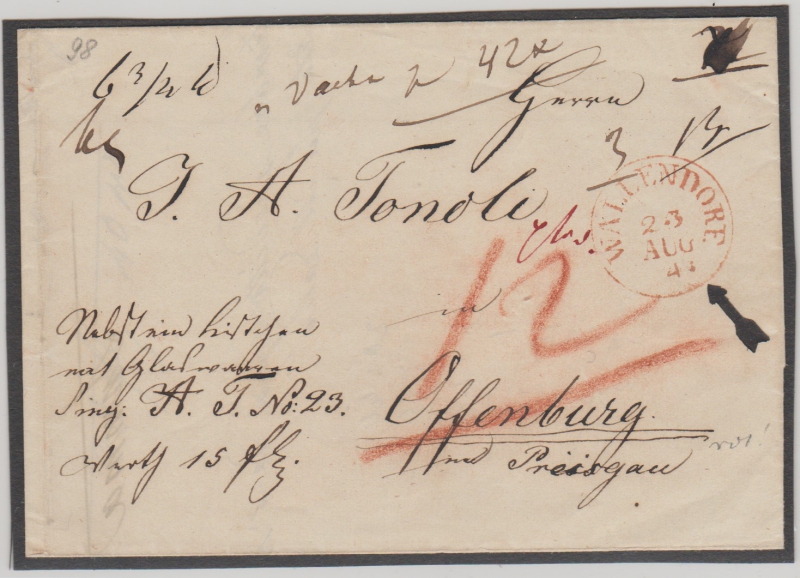 98
6 3/4 42x
Herrn
3
J. A. Tonoli
WALLENDORF
23
AUG
12
in
Nebst ein Kistchen
mit Glaswaaren
Sing. A. T. No: 23.
Werth 15 fl.
Offenburg
im Preisgau
rot!